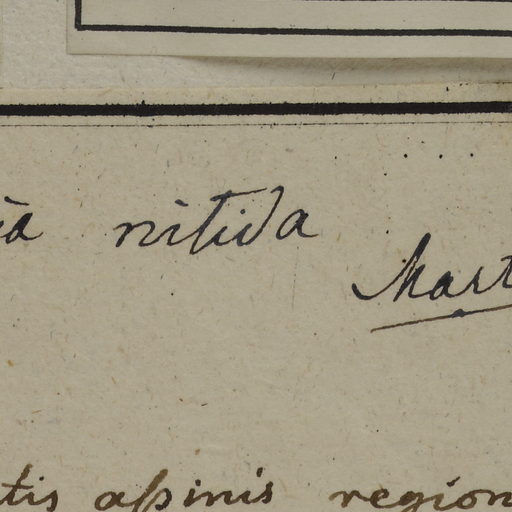 ia nitida
Mart
tis alpinis region